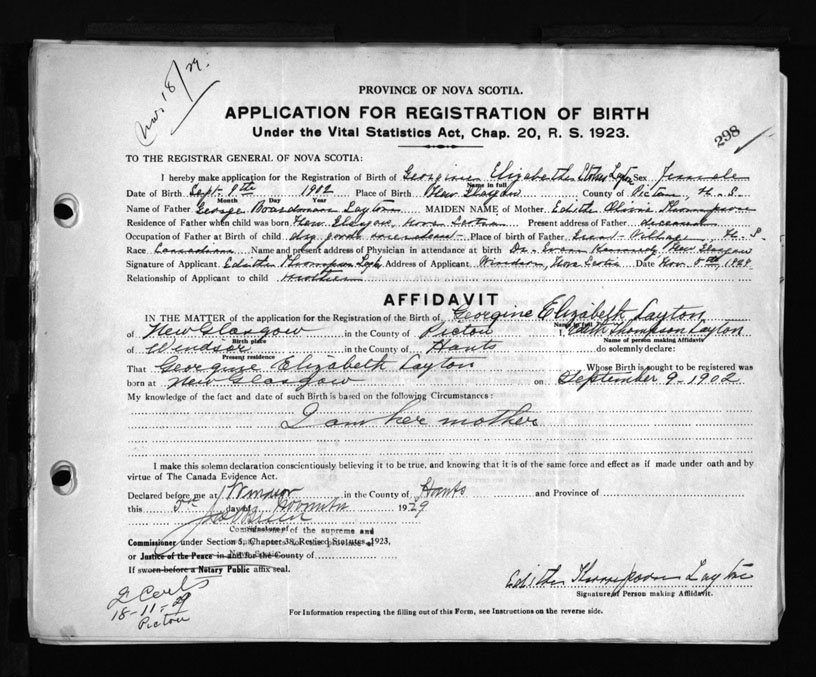 Nov. 18/29.
PROVINCE OF NOVA SCOTIA.
APPLICATION FOR REGISTRATION OF BIRTH
Under the Vital Statistics Act, Chap. 20, R. S. 1923.
298
TO THE REGISTRAR GENERAL OF NOVA SCOTIA:
I hereby make application for the Registration of Birth of Georgine Elizabeth Layton Sex Female
Name in full
Date of Birth Sept. 9th 1902 Place of Birth New Glasgow County of Pictou, N. S.
Month Day Year
Name of Father George Boardman Layton MAIDEN NAME of Mother Edith Olivia Thompson
Residence of Father when child was born New Glasgow, Nova Scotia Present address of Father deceased
Occupation of Father at Birth of child dry goods merchant Place of birth of Father Great Village N. S.
Race Canadian Name and present address of Physician in attendance at birth Dr. Evan Kennedy, New Glasgow
Signature of Applicant Edith Thompson Layton Address of Applicant Windsor, Nova Scotia Date Nov. 5th, 1929
Relationship of Applicant to child mother
AFFIDAVIT
IN THE MATTER of the application for the Registration of the Birth of Georgine Elizabeth Layton
Name in full
of New Glasgow in the County of Pictou I, Edith Thompson Layton
Birth place Name of person making Affidavit
of Windsor in the County of Hants do solemnly declare:
Present residence
That Georgine Elizabeth Layton Whose Birth is sought to be registered was
born at New Glasgow on September 9 - 1902
My knowledge of the fact and date of such Birth is based on the following Circumstances:
I am her mother
I make this solemn declaration conscientiously believing it to be true, and knowing that it is of the same force and effect as if made under oath and by
virtue of The Canada Evidence Act.
Declared before me at Windsor in the County of Hants and Province of
this 5th day of November 1929
Commissioner of the supreme and
Commissioner under Section 3, Chapter 38, Revised Statutes 1923,
or Justice of the Peace in and for the County of
If sworn before a Notary Public affix seal.
Edith Thompson Layton
Signature of Person making Affidavit.
2 Certs
18-11-29
Pictou
For Information respecting the filling out of this Form, see Instructions on the reverse side.